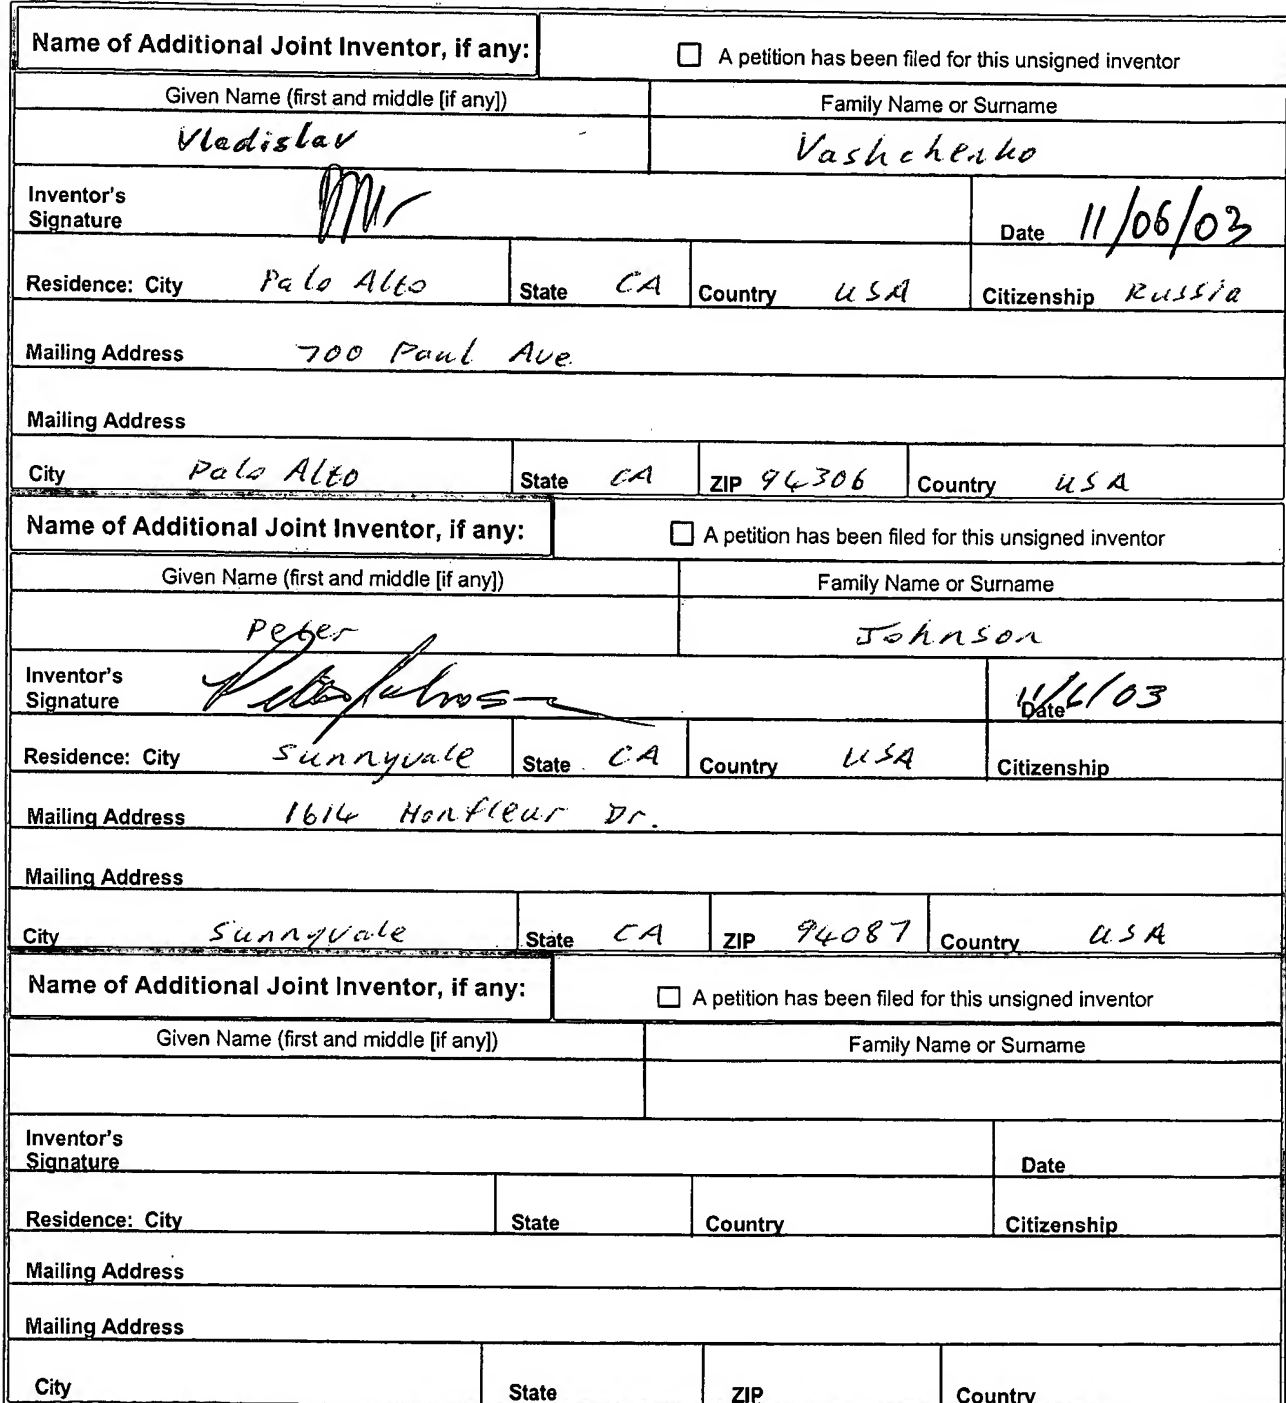 Name of Additional Joint Inventor, if any: ☐ A petition has been filed for this unsigned inventor
Given Name (first and middle [if any]) Family Name or Surname
Vladislav Vashchenko
Inventor's
Signature Date 11/06/03
Residence: City Palo Alto State CA Country USA Citizenship Russia
Mailing Address 700 Paul Ave
Mailing Address
City Palo Alto State CA ZIP 94306 Country USA
Name of Additional Joint Inventor, if any: ☐ A petition has been filed for this unsigned inventor
Given Name (first and middle [if any]) Family Name or Surname
Peter Johnson
Inventor's
Signature Peter Johnson Date 11/6/03
Residence: City Sunnyvale State CA Country USA Citizenship
Mailing Address 1614 Honfleur Dr.
Mailing Address
City Sunnyvale State CA ZIP 94087 Country USA
Name of Additional Joint Inventor, if any: ☐ A petition has been filed for this unsigned inventor
Given Name (first and middle [if any]) Family Name or Surname
Inventor's
Signature Date
Residence: City State Country Citizenship
Mailing Address
Mailing Address
City State ZIP Country